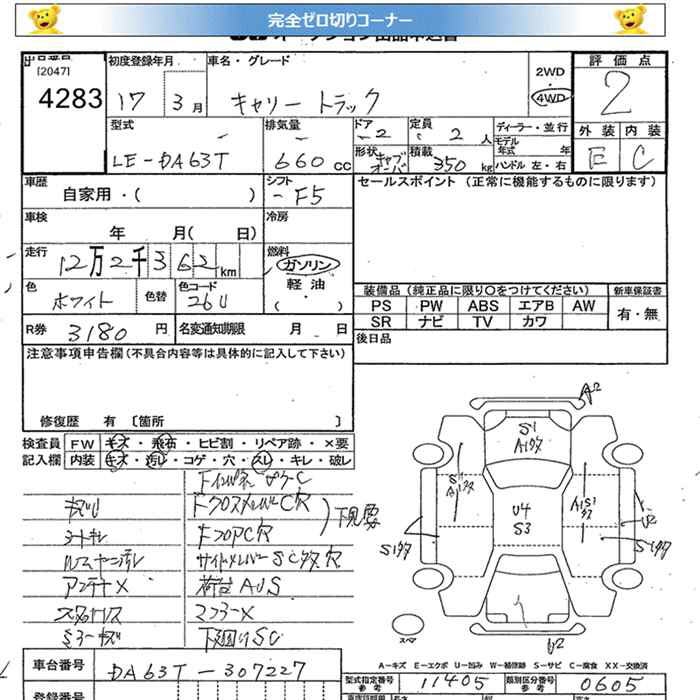 完全ゼロ切りコーナー
オークション出品申込書
出品番号
[2047]
4283
初度登録年月
17 3月
車名・グレード
キャリートラック
2WD
4WD
評価点
2
型式
LE-DA63T
排気量
660cc
ドア
2
定員
2人
ディーラー・並行
モデル年式 年
外装 内装
E C
形状
キャブオーバ
積載
350kg
ハンドル 左・右
車歴
自家用・( )
シフト
F5
セールスポイント (正常に機能するものに限ります)
車検
年 月( 日)
冷房
走行
12万2千362km
燃料
ガソリン
軽油
( )
色
ホワイト
色替
色コード
26U
装備品 (純正品に限り○をつけてください)
新車保証書
PS PW ABS エアB AW
有・無
SR ナビ TV カワ
R券 3180円
名変通知期限 月 日
後日品
注意事項申告欄 (不具合内容等は具体的に記入して下さい)
修復歴 有 〔箇所 〕
検査員 FW キズ・飛石・ヒビ割・リペア跡・×要
記入欄 内装 キズ・汚レ・コゲ・穴・スレ・キレ・破レ
キズU
シートキレ
ルームヤニ汚レ
アンテナX
ミラーキズ
FクロスメンバーC穴
FフロアC穴
下見要
サイドメンバーSCタタ穴
荷台AUS
マフラーX
下廻りSC
A2
S1
U4
S3
U2
U2
スペア
A-キズ E-エクボ U-凹み W-補修跡 S-サビ C-腐食 XX-交換済
車台番号
DA63T-307227
型式指定番号
参考
11405
類別区分番号
参考
0605
登録番号